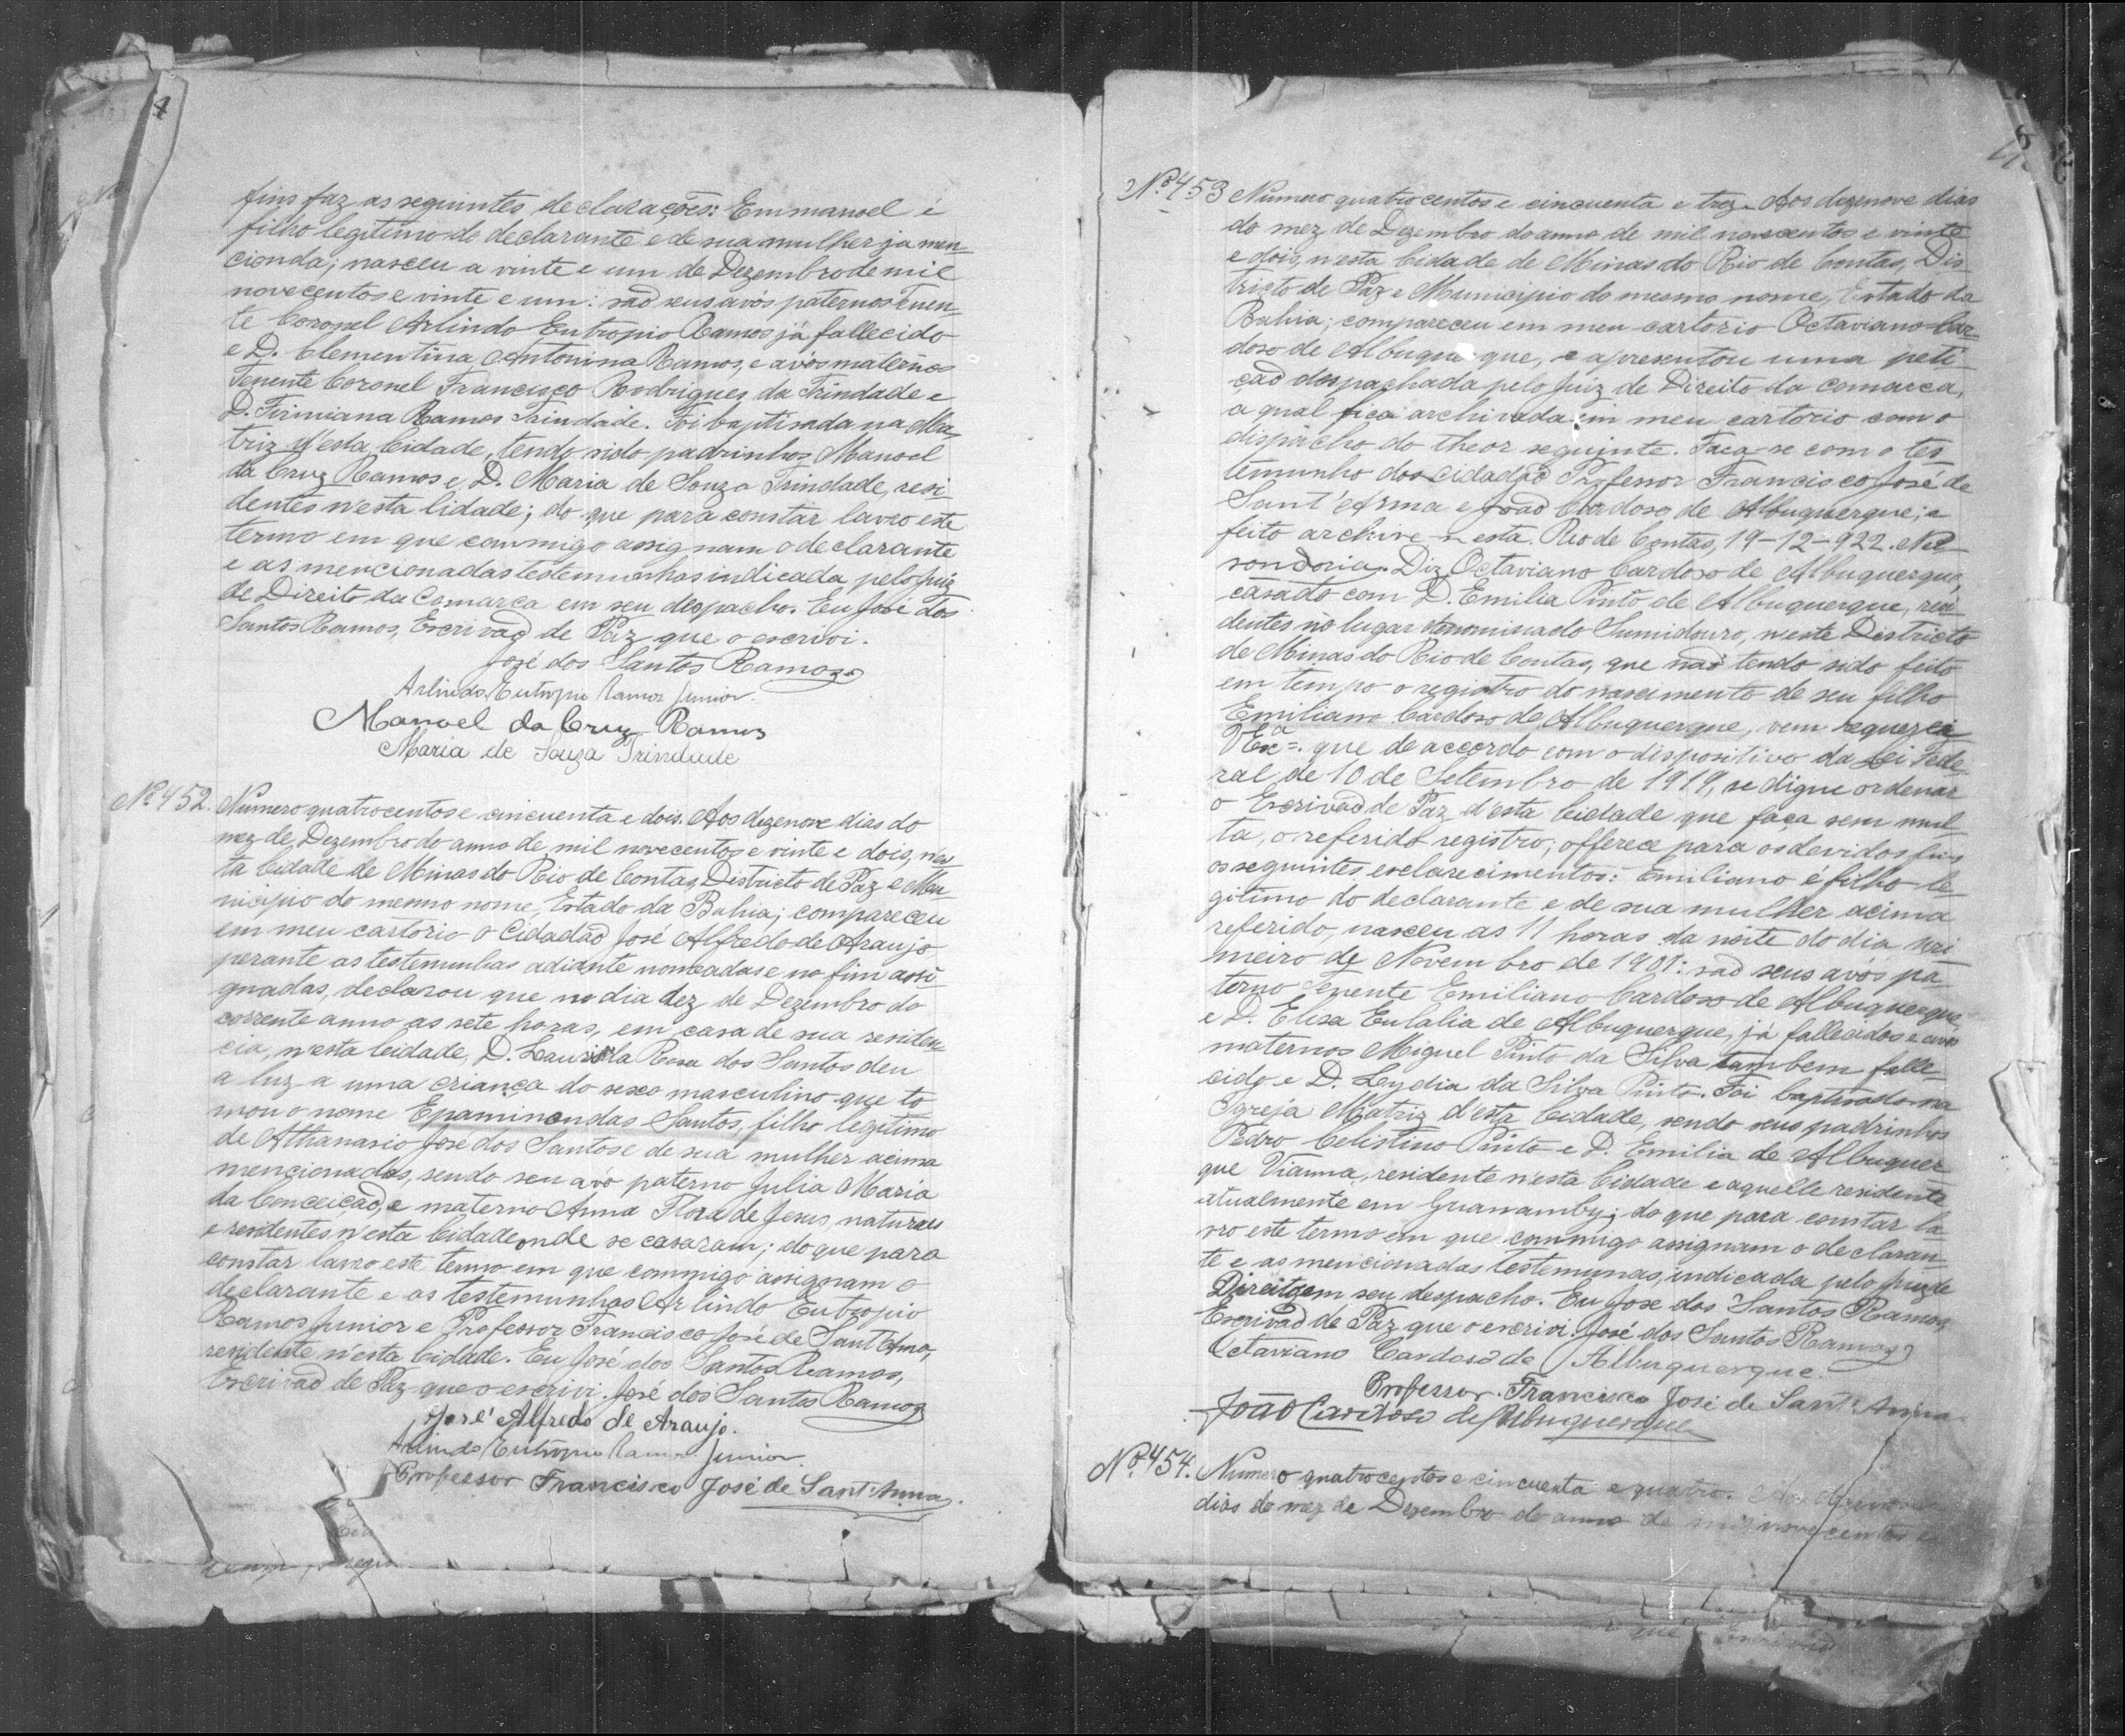 4
fins faz as seguintes declarações: Emmanoel é
filho legitimo do declarante e de sua mulher ja men-
cionda; nasceu a vinte e um de Dezembro de mil
novecentos e vinte e um: são seus avós paternos Tenen-
te Coronel Arlindo Eutropio Ramos já fallecido
e D. Clementina Antonina Ramos, e avós maternos
Tenente Coronel Francisco Rodrigues da Trindade e
D. Firmiana Ramos Trindade. Foi baptisada na Ma-
triz d'esta Cidade, tendo sido padrinhos Manoel
da Cruz Ramos e D. Maria de Souza Trindade, resi-
dentes n'esta Cidade; do que para constar lavro este
termo em que commigo assignam o declarante
e as mencionadas testemunhas indicada pelo Juiz
de Direito da Comarca em seu despacho. Eu José dos
Santos Ramos, Escrivão de Paz que o escrivi.
José dos Santos Ramos
Arlindo Eutropio Ramos Junior.
Manoel da Cruz Ramos
Maria de Souza Trindade
Nº 452. Numero quatrocentos e cincuenta e dois. Aos dezenove dias do
mez de Dezembro do anno de mil novecentos e vinte e dois, n'es-
ta Cidade de Minas do Rio de Contas, Districto de Paz e Mu-
nicipio do mesmo nome, Estado da Bahia; compareceu
em meu cartorio o Cidadão José Alfredo de Araujo
perante as testemunhas adiante nomeadas e no fim assi-
gnadas, declarou que no dia dez de Dezembro do
corrente anno as sete horas, em casa de sua residen-
cia, n'esta Cidade, D. Rosa dos Santos deu
a luz a uma criança do sexo masculino que to
mou o nome Epaminondas Santos, filho legitimo
de Athanasio José dos Santos e de sua mulher acima
mencionadas, sendo seu avó paterno Julia Maria
da Conceição, e materno Anna Flora de Jesus, naturaes
e residentes n'esta Cidade onde se casaram; do que para
constar lavro este termo em que commigo assignam o
declarante e as testemunhas Arlindo Eutropio
Ramos Junior e Professor Francisco José de Sant'Anna,
residente n'esta Cidade. Eu José dos Santos Ramos,
Escrivão de Paz que o escrivi. José dos Santos Ramos
José Alfredo de Araujo.
Arlindo Eutropio Ramos Junior.
Professor Francisco José de Sant'Anna.
Nº 453 Numero quatrocentos e cincuenta e trez. Aos dezenove dias
do mez de Dezembro do anno de mil novecentos e vinte
e dois, n'esta Cidade de Minas do Rio de Contas, Dis-
tricto de Paz e Municipio do mesmo nome, Estado da
Bahia; compareceu em meu cartorio Octaviano Car-
doso de Albuquerque, e apresentou uma peti-
ção despachada pelo Juiz de Direito da comarca,
a qual fica archivada em meu cartorio com o
dispacho do theor seguinte. Faça-se com o tes
temunho dos cidadão Professor Francisco José de
Sant'Anna e João Cardoso de Albuquerque; e
feito archive-se esta. Rio de Contas, 19-12-922.
Diz Octaviano Cardoso de Albuquerque,
casado com D. Emilia Pinto de Albuquerque, resi-
dentes no lugar denominado Sumidouro, n'este Districto
de Minas do Rio de Contas, que não tendo sido feito
em tempo o registro do nascimento de seu filho
Emiliano Cardoso de Albuquerque, vem requerer a
V. Exª. que de accordo com o dispositivo da Lei Fede-
ral de 10 de Setembro de 1919, se digne ordenar
o Escrivão de Paz d'esta Cidade que faça sem mul-
ta, o referido registro; offerece para os devidos fins
os seguintes esclarecimentos: Emiliano é filho le-
gitimo do declarante e de sua mulher acima
referido, nasceu as 11 horas da noite do dia pri
meiro de Novembro de 1901: são seus avós pa-
terno Tenente Emiliano Cardoso de Albuquerque
e D. Elisa Eulalia de Albuquerque, já fallecidos e avós
maternos Miguel Pinto da Silva tambem falle-
cido e D. Lydia da Silva Pinto. Foi baptisado na
Igreja Matriz d'esta Cidade, sendo seus padrinhos
Pedro Celistino Pinto e D. Emilia de Albuquer-
que Vianna, residente n'esta Cidade e aquelle residente
atualmente em Guanamby; do que para constar la-
vro este termo em que commigo assignam o declaran-
te e as mencionadas testemunas, indicada pelo Juiz de
Direito em seu despacho. Eu José dos Santos Ramos,
Escrivão de Paz que o escrivi. José dos Santos Ramos
Octaviano Cardoso de Albuquerque.
Professor Francisco José de Sant'Anna
João Cardoso de Albuquerque
Nº 454. Numero quatrocentos e cincuenta e quatro. Aos dezenove
dias do mez de Dezembro do anno de mil novecentos e